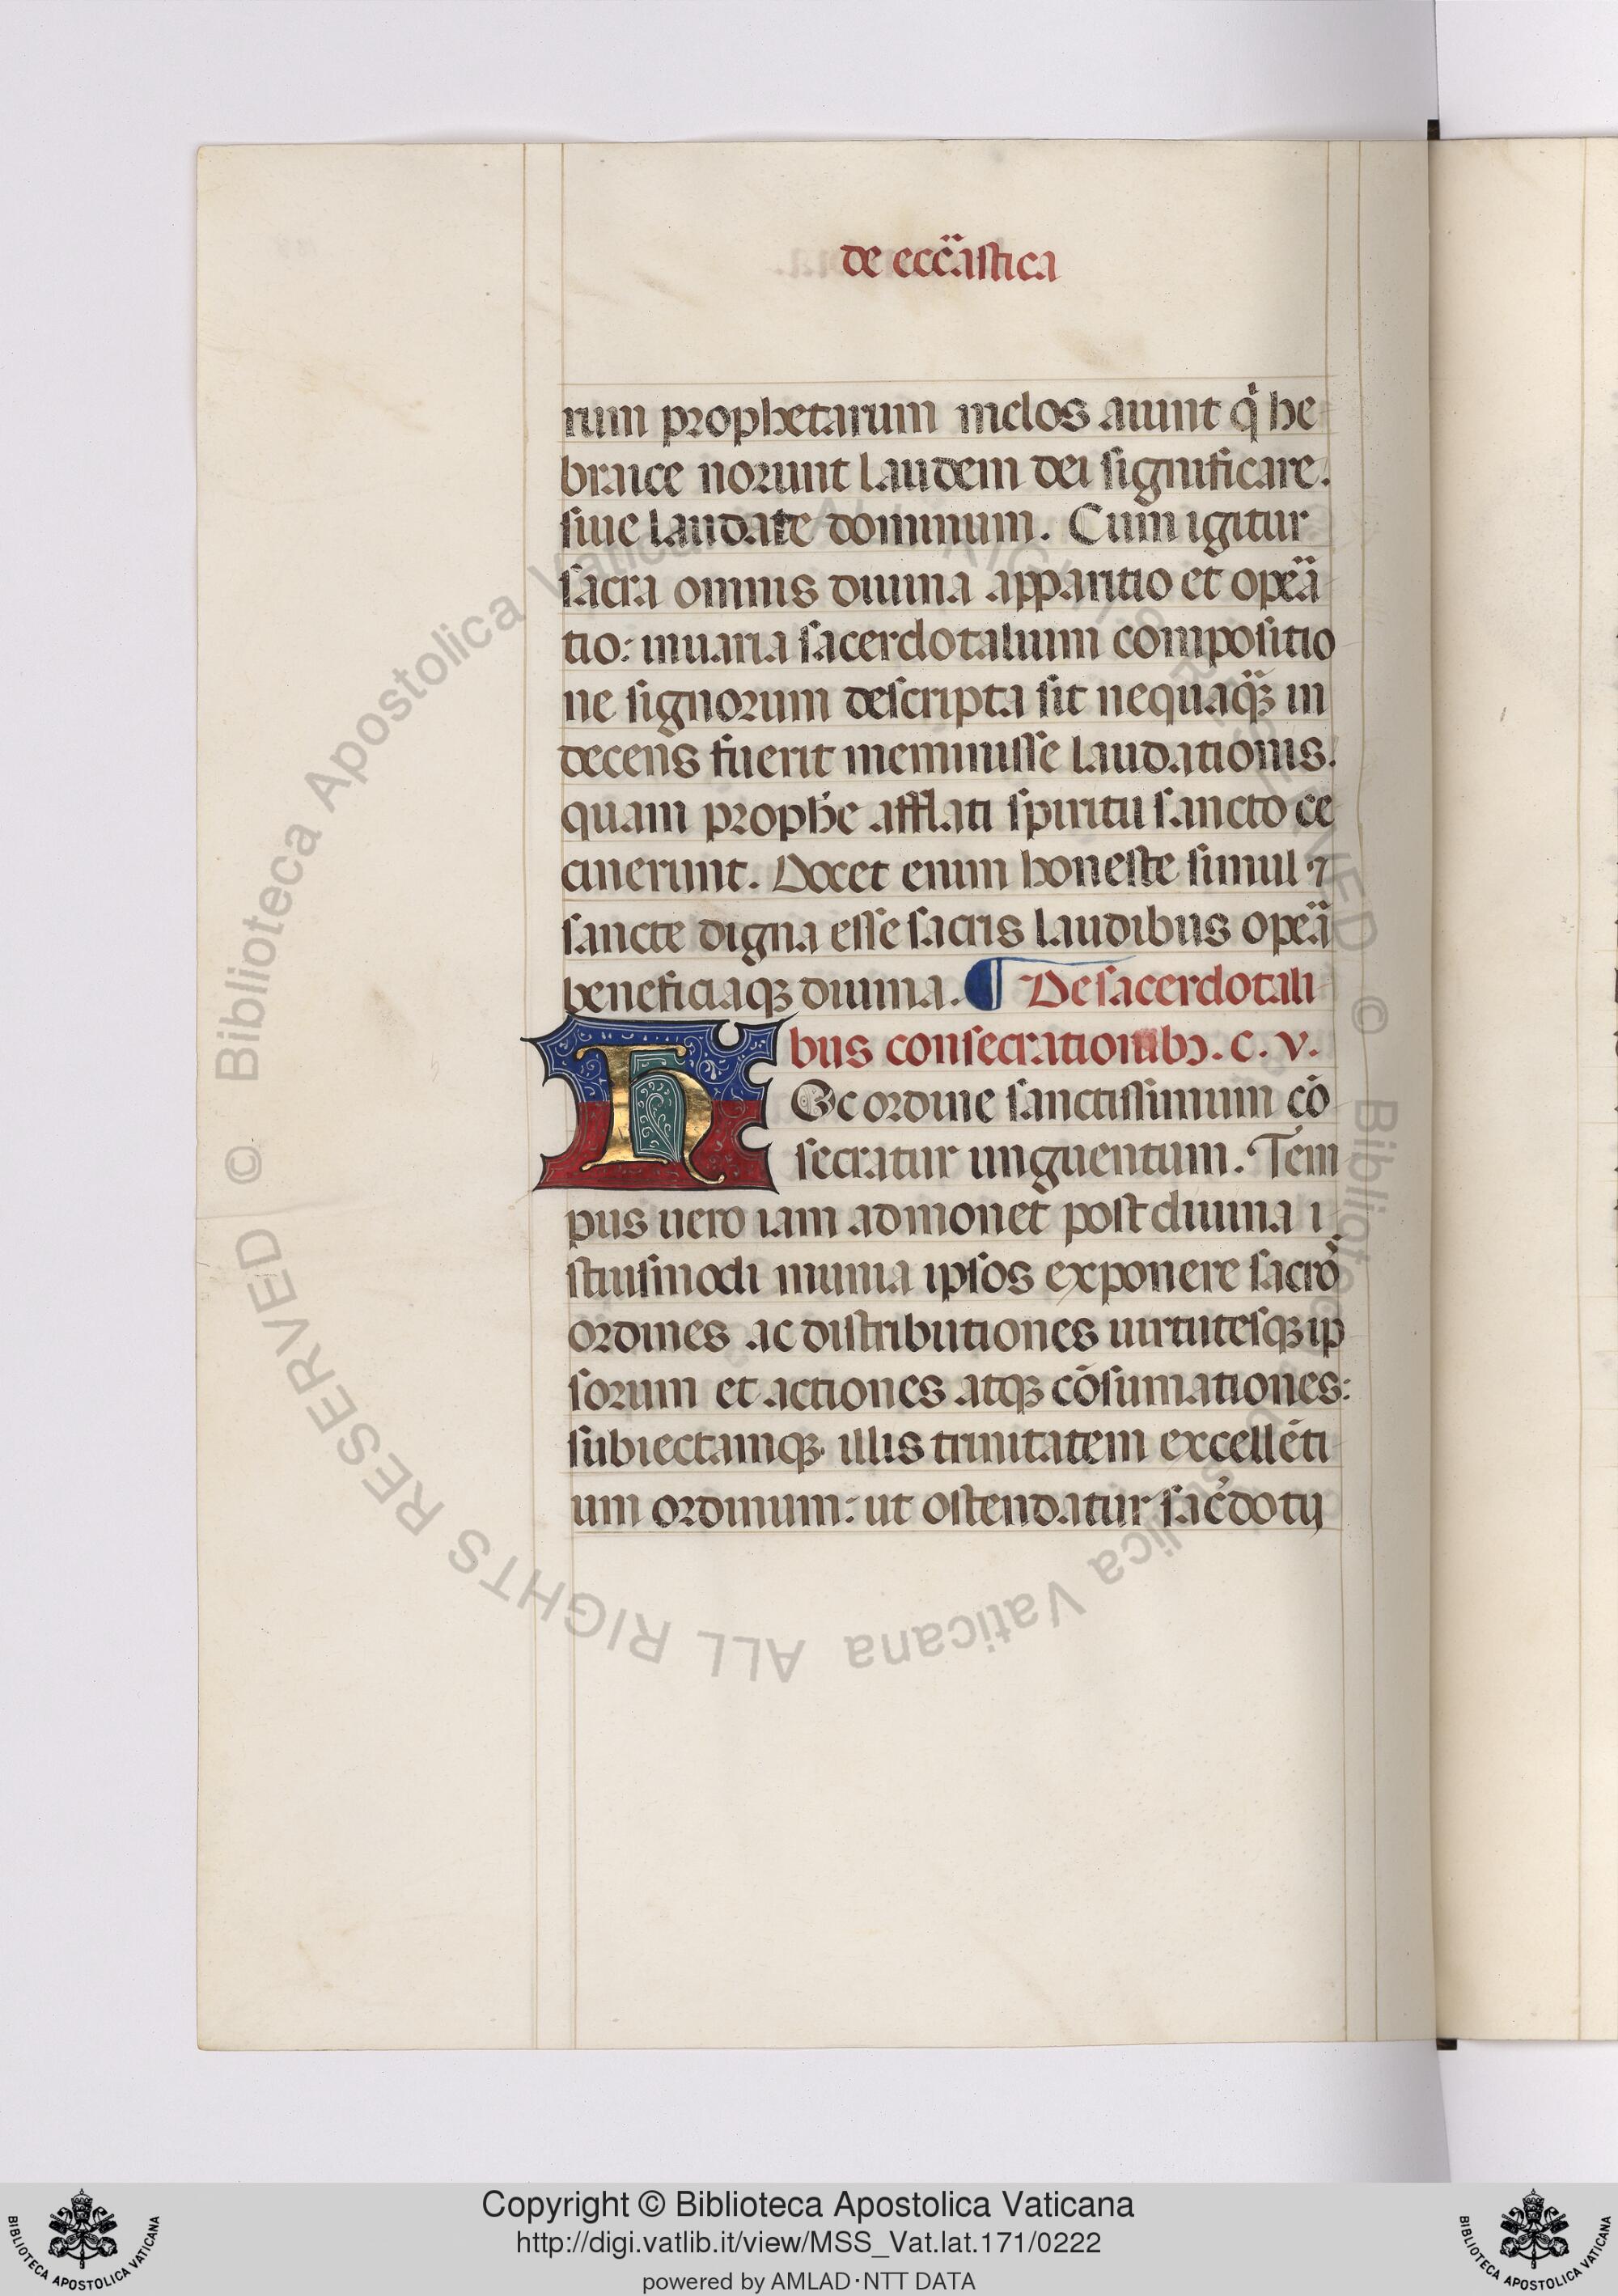 de ecc̈astica
rum prophetarum melos aiunt q̇ he
braice norunt laudem dei significare.
siue laudate dominum. Cum igitur
sacra omnis diuina apparitio et opea̎
tio: inuaria sacerdotalium compositio
ne signorum descripta sit nequaq̃ꝫ in
decens fuerit meminisse laudationis.
quam prophe̅ afflati spiritu sancto ce
cinerunt. Docet enim honeste simul ⁊
sancte digna esse sacris laudibus opea̎
beneficiaqꝫ diuina. ¶ De sacerdotali
bus consecrationibꝰ. c. v.
HOc ordine sanctissimum cō
secratur unguentum. Tem
pus uero iam admonet post diuina i
stiusmodi munia ipsos exponere sacro᷑
ordines ac distributiones uirtutesqꝫ ip
sorum et actiones atqꝫ cōsumationes:
subiectamqꝫ illis trinitatem excellēti
um ordinum: ut ostendatur sac̓dotij
© Biblioteca Apostolica Vaticana ALL RIGHTS RESERVED © Biblioteca Apostolica Vaticana ALL RIGHTS RESERVED
Copyright © Biblioteca Apostolica Vaticana
http://digi.vatlib.it/view/MSS_Vat.lat.171/0222
powered by AMLAD·NTT DATA
BIBLIOTECA APOSTOLICA VATICANA
BIBLIOTECA APOSTOLICA VATICANA